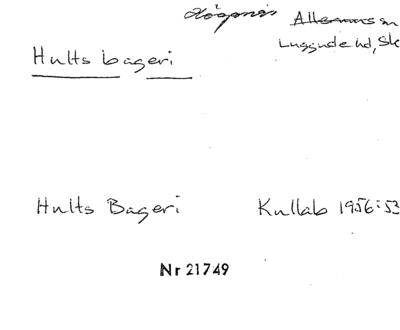 Höganäs Allerums sn
Luggude hd, Sk
Hults bageri
Hults Bageri Kullab 1956:53
Nr 21749